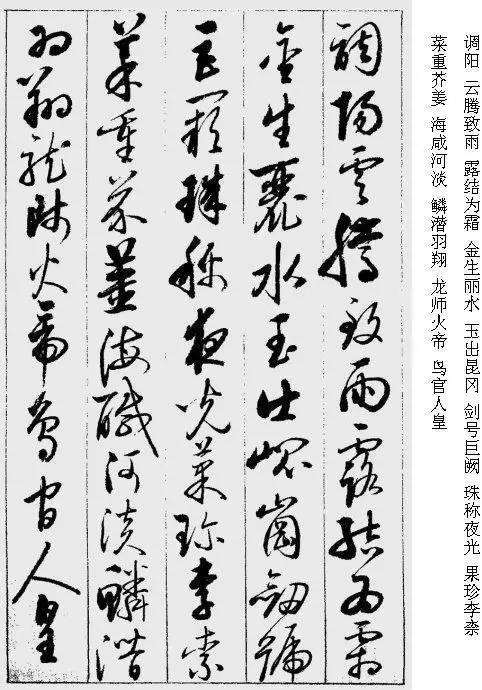 调阳 云腾致雨 露结为霜 金生丽水 玉出昆冈 剑号巨阙 珠称夜光 果珍李柰
菜重芥姜 海咸河淡 鳞潜羽翔 龙师火帝 鸟官人皇
調陽雲騰致雨露結為霜
金生麗水玉出崐崗劔號
巨闕珠称夜光菓珍李柰
菜重芥薑海醎河淡鱗潜
羽翔龍師火帝鳥官人皇